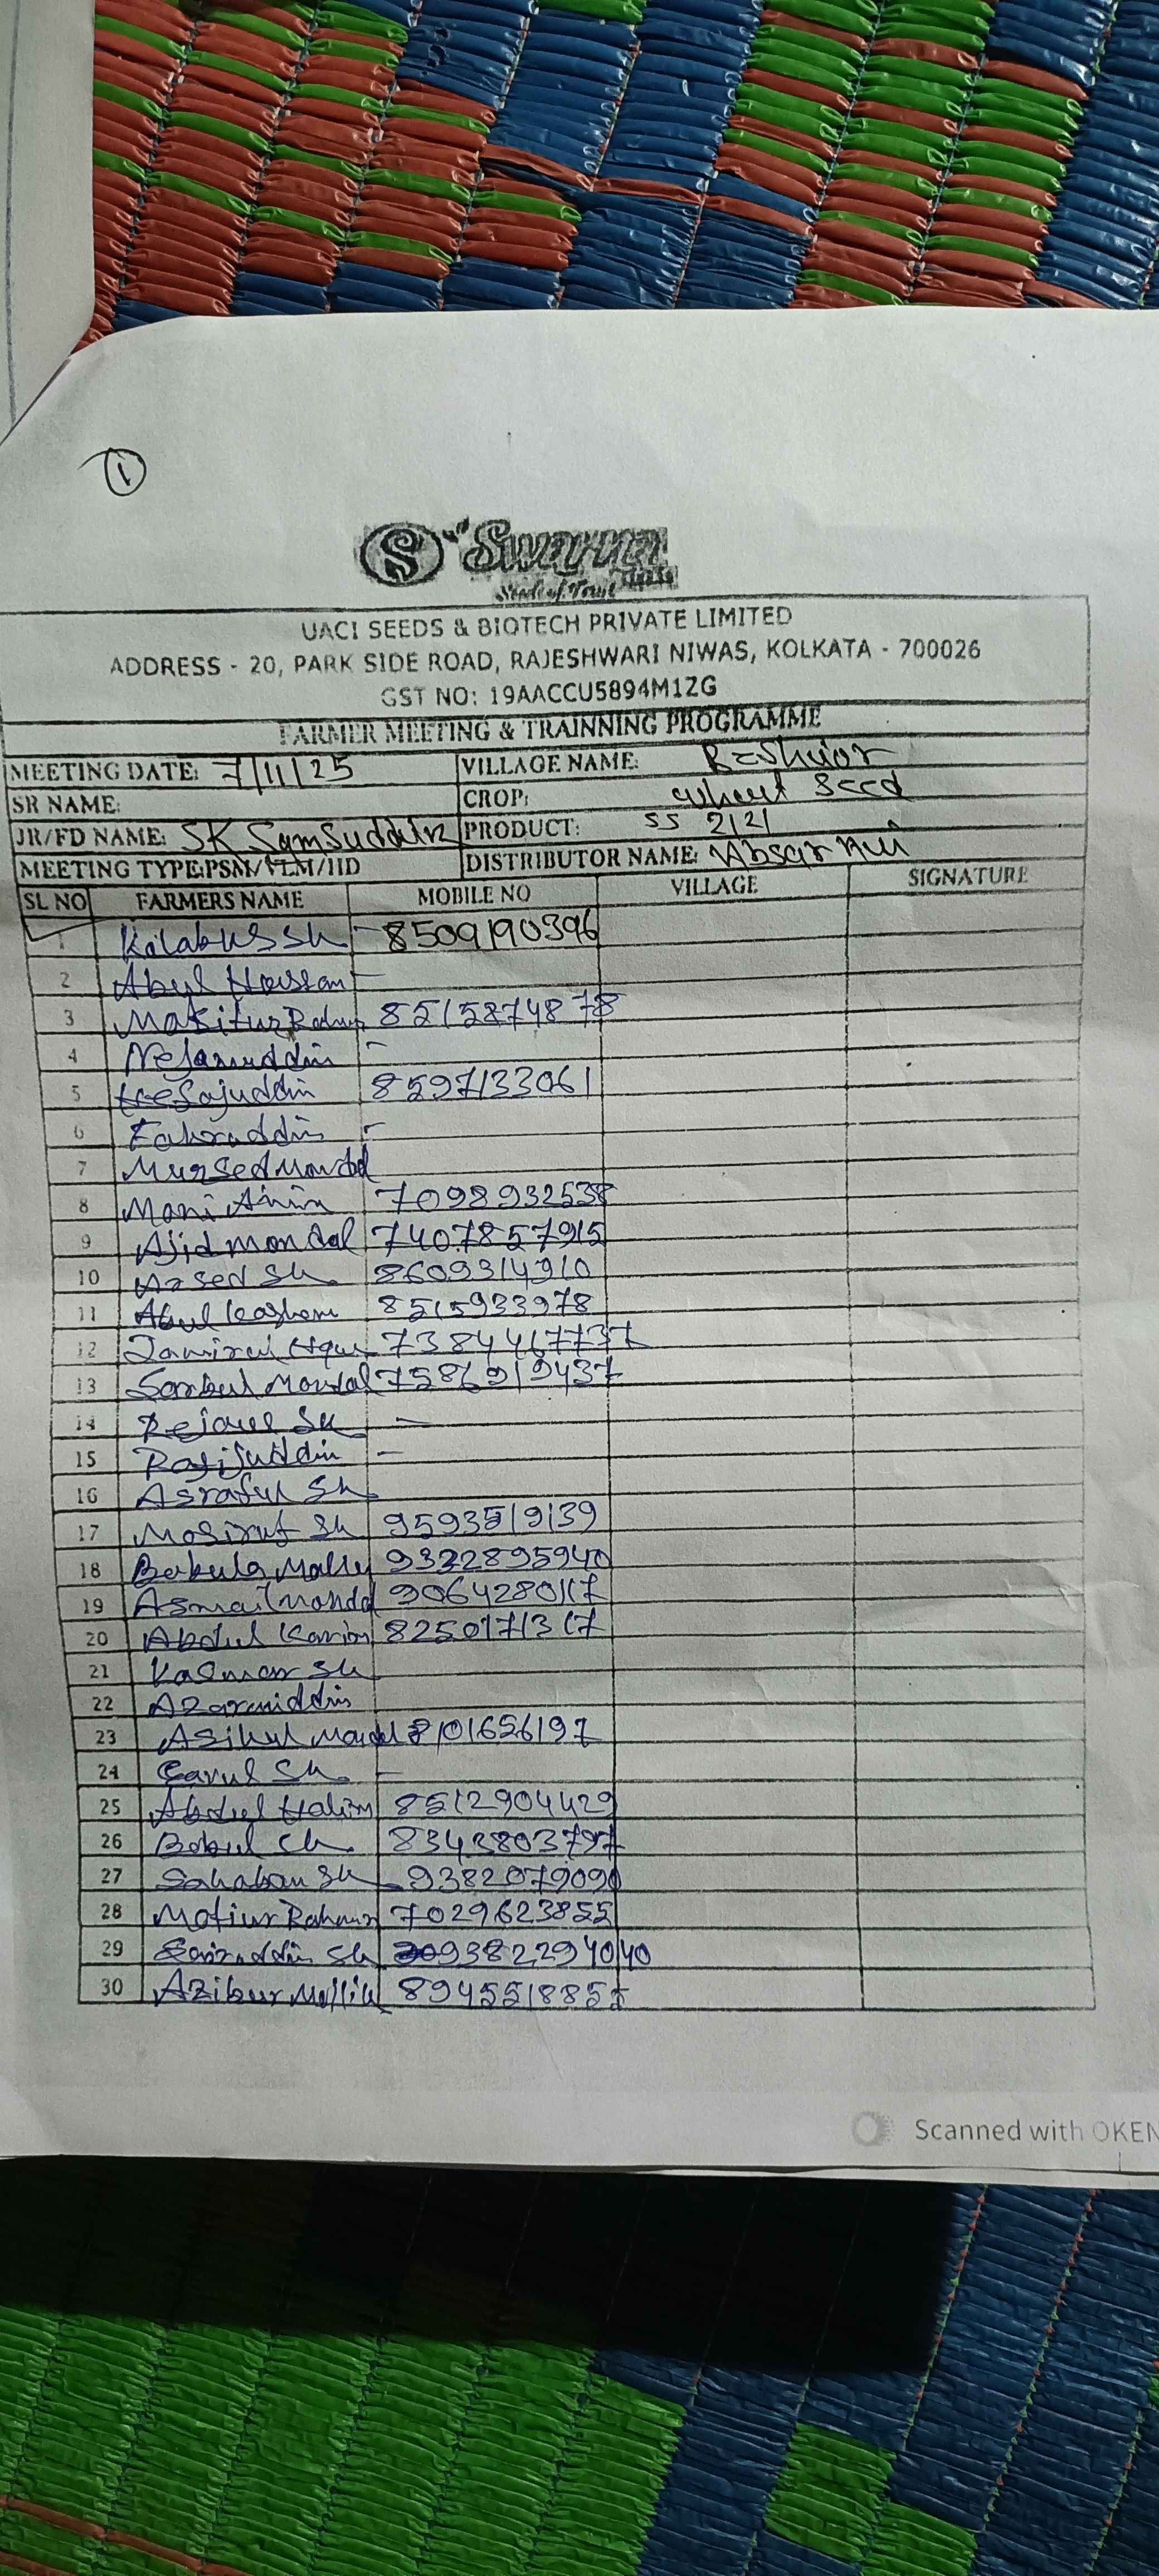 1
S Swarna
UACI SEEDS & BIOTECH PRIVATE LIMITED
ADDRESS - 20, PARK SIDE ROAD, RAJESHWARI NIWAS, KOLKATA - 700026
GST NO: 19AACCU5894M1ZG
FARMER MEETING & TRAINNING PROGRAMME
MEETING DATE: 7/11/25 VILLAGE NAME:
SR NAME: CROP: wheat Seed
JR/FD NAME: SK Samsuddin PRODUCT: SS 2121
MEETING TYPE:PSM/VLM/IID DISTRIBUTOR NAME: Absar Ali
SL NO FARMERS NAME MOBILE NO VILLAGE SIGNATURE
1 Kilabus sk - 8509190396
2 Abul Hossan -
3 Mositur Rahm 8515874878
4 Nejamuddin -
5 8597133061
6 Fakruddin -
7 Mursed Mondal
8 Moni Amin 7098932538
9 Ajid mondal 7407857915
10 Arsed Sk 8609314910
11 Abul Kashem 8515933978
12 Jamirul Haque 7384467737
13 Mondal 7586919437
14 Rejaul Sk -
15 Rafijuddin -
16 Asraful Sk
17 Mosiruf Sk 9593519139
18 9332895940
19 Asmail Mondal 9064280117
20 Abdul Karim 8250171317
21 Sk
22 Azaruiddin
23 Asikul Mondal 8101656197
24 Sk -
25 Abdul Halim 8512904429
26 Babul Sk 8343803797
27 Sahaban Sk 9382079090
28 Motiur Rahman 7029623855
29 Sk 9382294040
30 Azibur Mollik 8945518855
Scanned with OKEN